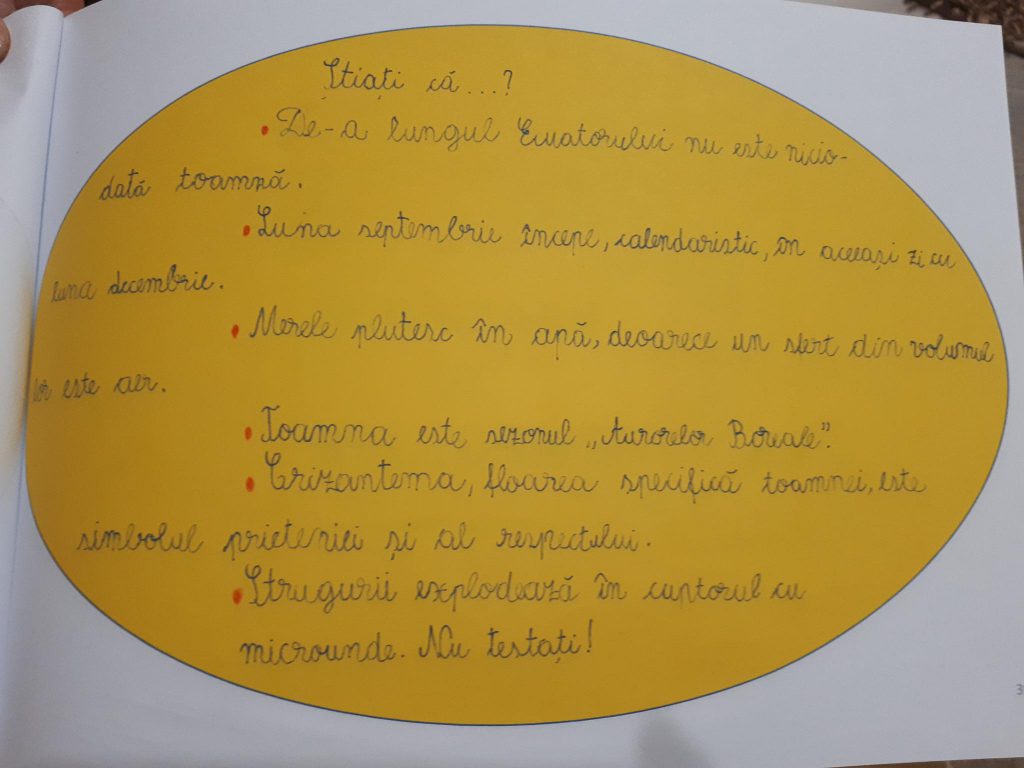 Știați că...?
• De-a lungul Ecuatorului nu este nicio-
dată toamnă.
• Luna septembrie începe, calendaristic, în aceeași zi cu
luna decembrie.
• Merele plutesc în apă, deoarece un sfert din volumul
lor este aer.
• Toamna este sezonul „Aurorelor Boreale".
• Crizantema, floarea specifică toamnei, este
simbolul prieteniei și al respectului.
• Strugurii explodează în cuptorul cu
microunde. Nu testați!
3